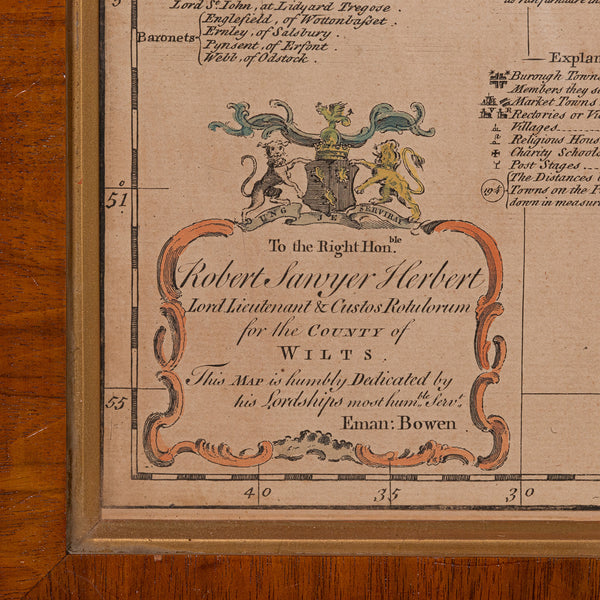 5
Lord St. John, at Lidyard Tregose.
Baronets
Englefield, of Wottonbasset.
Ernley, of Salsbury.
Pynsent, of Erfont.
Webb, of Odstock.
Explan
Burough Towns
Members they s
Market Towns
Rectories or Vi
Villages
Religious Hous
Charity Schools
Post Stages
The Distances
194
Towns on the P
down in measur
51
UNG JE SERVIRAY
To the Right Hon.ble
Robert Sawyer Herbert
Lord Lieutenant & Custos Rotulorum
for the COUNTY of
WILTS.
This MAP is humbly Dedicated by
his Lordships most hum.ble Serv.t
Eman: Bowen
55
40 35 30